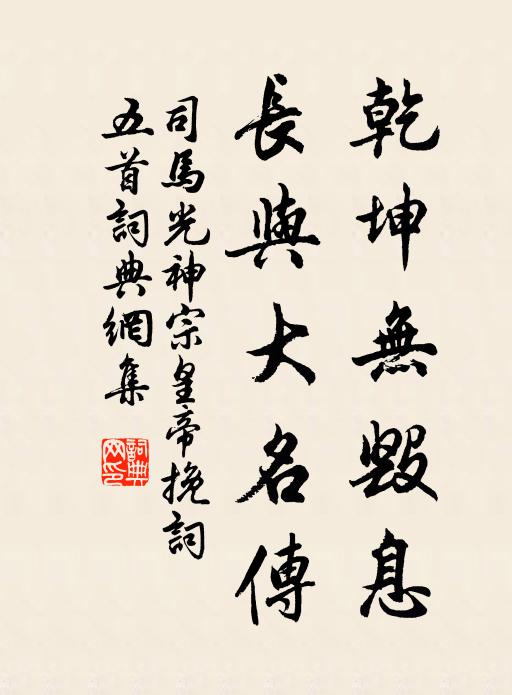 乾坤無毀息
長與大名傳
司馬光神宗皇帝挽詞
五首詞典網集
詞典網印